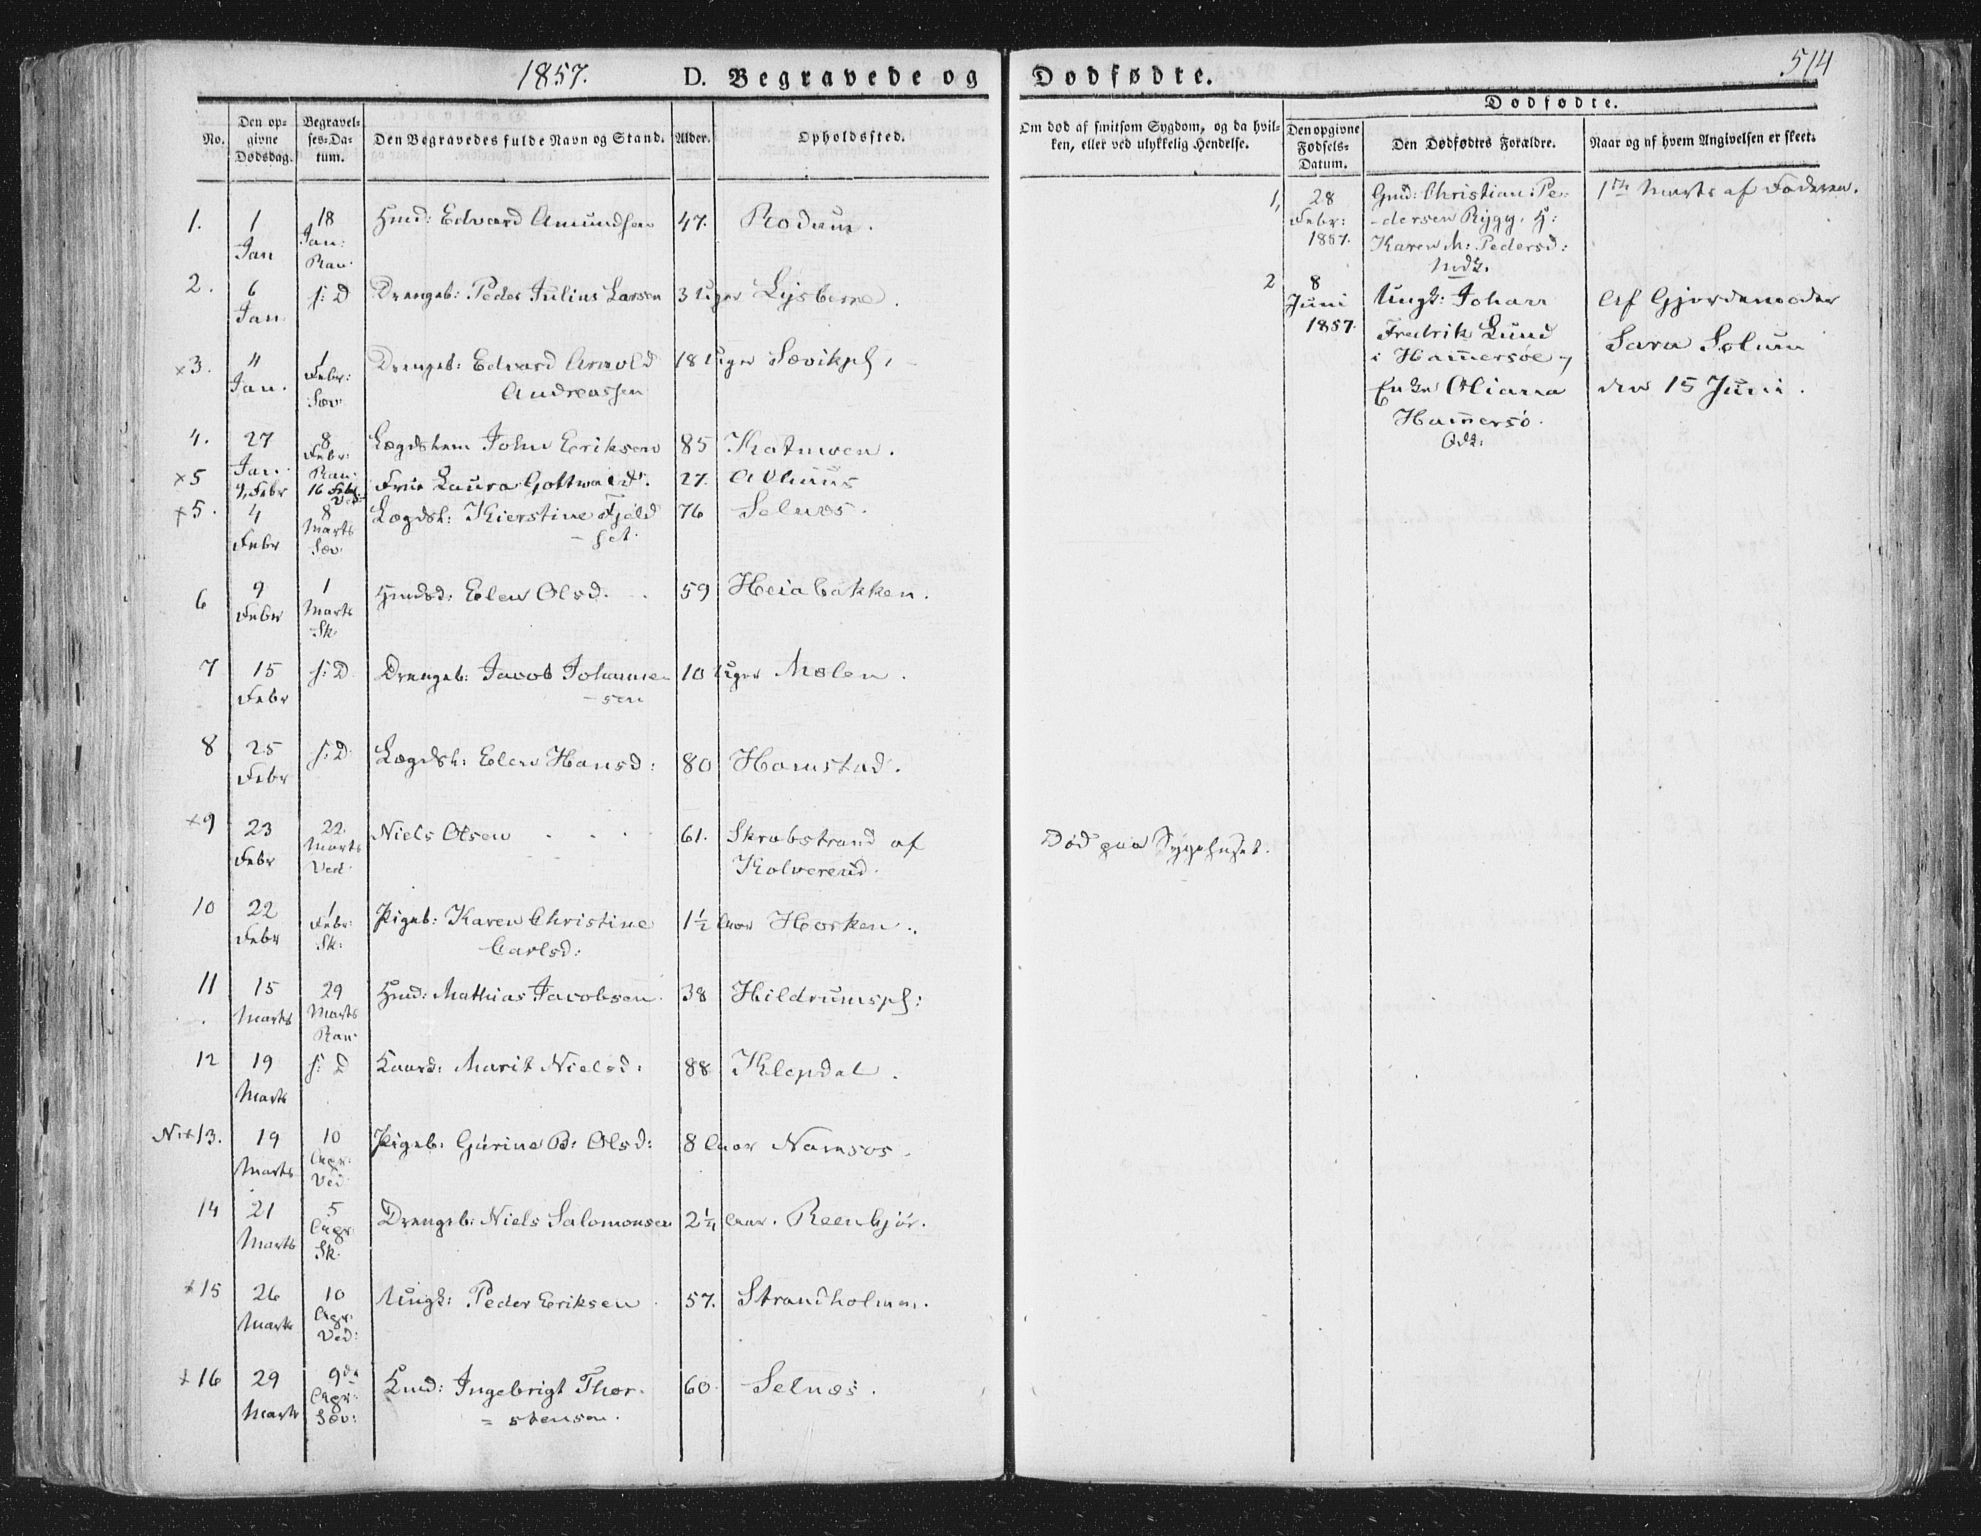 1857. D. Begravede og Dødfødte. 514
No.
Den opgivne Dødsdag.
Begravelses-Datum.
Den Begravedes fulde Navn og Stand.
Alder.
Opholdssted.
Om død af smitsom Sygdom, og da hvilken, eller ved ulykkelig Hendelse.
Dødfødte.
Den opgivne Fødsels-Datum.
Den Dødfødtes Forældre.
Naar og af hvem Angivelsen er skeet.
1. 1 Jan 18 Jan: Ran: Hmd: Edvard Amundsen 47. Rodum.
2. 6 Jan s: D Drengeb: Peder Julius Larsen 3 Uger Lysberre.
x3. " Jan. 1 Febr: Sæv: Drengeb: Edvard Arnold 18 Uger Sævikpl,
Andreassen
4. 27 Jan. 8 Febr: Ran: Lægdslem John Eriksen 85 Katmoen.
x5 4 Febr 16 Febr. Ved: Frue Laura Gottwald. 27. Alhuus
x5. 4 Febr 8 Marts Sæv: Lægdsl: Kierstine Fjeld 76 Selnæs.
-set.
6 9 Febr 1 Marts Sk. Hmdsd: Elen Olsd. 59 Heiabakken.
7 15 Febr s: D Drengeb: Jacob Johanne 10 Uger Molen.
-sen
8 25 Febr s: D Lægdsl: Elen Hansd: 80 Hamstad.
x9 23 Febr 22 Marts Ved: Niels Olsen 61. Skrabstrand af
Kolvereid.
Død paa Sygehuset.
10 22 Febr 1 Febr: Sk: Pigeb: Karen Christine 1½ Aar Horken.
Carlsd:
11 15 Marts 29 Marts Ran: Hmd: Mathias Jacobsen. 38 Hildrumspl:
12 19 Marts s: D Kaard: Marit Nielsd: 88 Klepdal.
N: x13. 19 Marts 10 Apr: Ved: Pigeb: Gurine B: Olsd: 8 Aar Namsos.
14 21 Marts 5 Apr: Sk. Drengeb: Niels Salomonsen 2¼ Aar. Reenbjør.
x15 26 Marts 10 Apr: Ved: Ungk: Peder Eriksen 57. Strandholmen.
x16 29 Marts 9de Apr: Sæv: Hmd: Ingebrigt Thor- 60. Selnæs.
=stensen.
1, 28 Febr: 1857. Gmd: Christian Pe- 1ste Marts af Faderen.
-dersen Rygg, H:
Karen M: Pedersd:
2 8 Juni 1857. Ungk: Johan Af Gjordemoder
Fredrik Lund Sara Solum
i Hammersøe og den 15 Juni.
Enke Oliana
Hammersø.